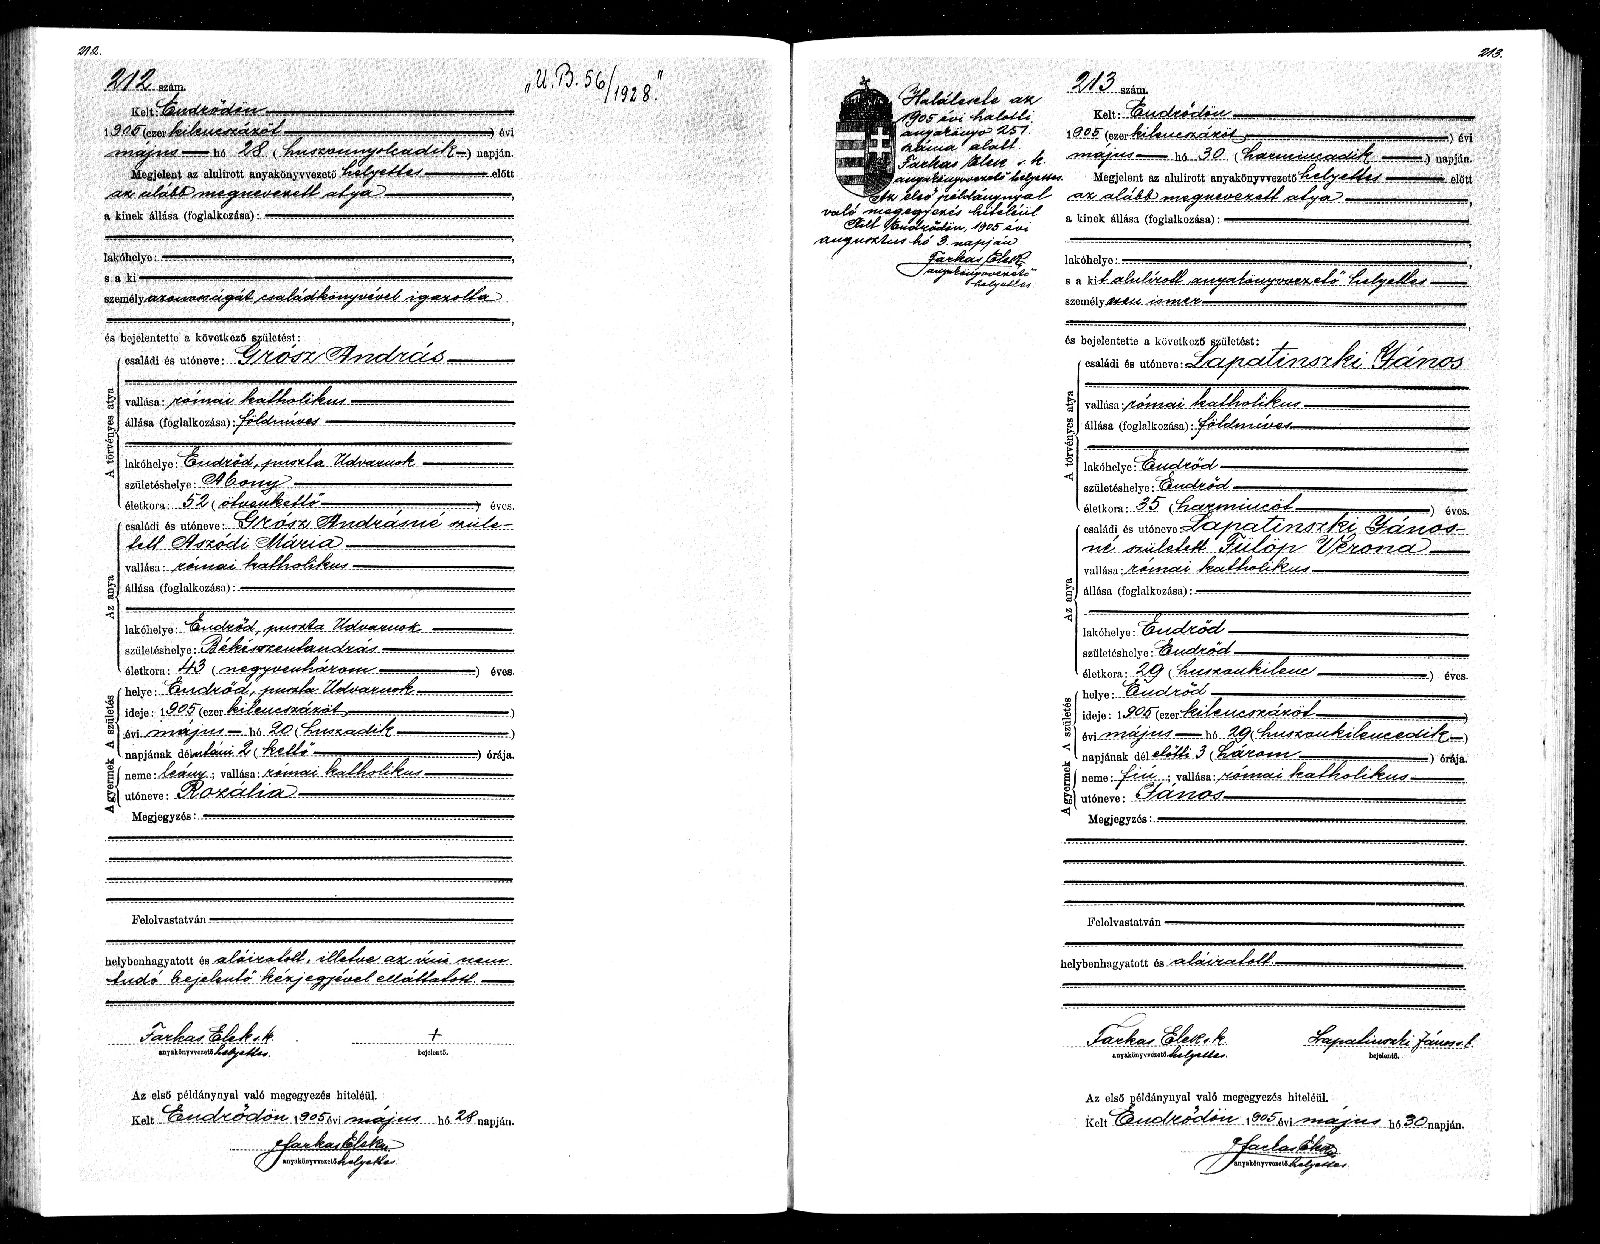 212.
212 szám.
„U.B. 56/1928."
Kelt: Endrődön
1905 (ezer kilencszázöt) évi
május hó 28 (huszonnyolcadik) napján.
Megjelent az alulirott anyakönyvvezető helyettes előtt
az alább megnevezett atya,
a kinek állása (foglalkozása):
lakóhelye:
s a ki
személyazonosságát családkönyvével igazolta
és bejelentette a következő születést:
A törvényes atya
családi és utóneve: Grósz András
vallása: római katholikus
állása (foglalkozása): földmíves
lakóhelye: Endrőd, puszta Udvarnok
születéshelye: Abony
életkora: 52 (ötvenkettő) éves.
Az anya
családi és utóneve: Grósz Andrásné szüle-
tett Aszódi Mária
vallása: római katholikus
állása (foglalkozása):
lakóhelye: Endrőd, puszta Udvarnok
születéshelye: Békésszentandrás
életkora: 43 (negyvenhárom) éves.
A születés
helye: Endrőd, puszta Udvarnok
ideje: 1905 (ezer kilencszázöt)
évi május hó 20 (huszadik)
napjának délutáni 2 (kettő) órája.
A gyermek
neme: leány; vallása: római katholikus
utóneve: Rozália
Megjegyzés:
Felolvastatván
helybenhagyatott és aláiratott, illetve az írni nem
tudó bejelentő kézjegyével elláttatott.
Farkas Elek s.k. +
anyakönyvvezető helyettes. bejelentő.
Az első példánynyal való megegyezés hiteléül.
Kelt Endrődön 1905 évi május hó 28 napján.
Farkas Elek
anyakönyvvezető helyettes
213.
Halálesete az
1905 évi halotti
anyakönyv 251.
száma alatt.
Farkas Elek s.k.
anyakönyvvezető helyettes.
Az első példánynyal
való megegyezés hiteléül
Kelt Endrődön, 1905 évi
augusztus hó 9. napján
Farkas Elek
anyakönyvvezető
helyettes
213 szám.
Kelt: Endrődön
1905 (ezer kilencszázöt) évi
május hó 30 (harmincadik) napján.
Megjelent az alulirott anyakönyvvezető helyettes előtt
az alább megnevezett atya,
a kinek állása (foglalkozása):
lakóhelye:
s a kit alulírott anyakönyvvezető helyettes
személyesen ismer
és bejelentette a következő születést:
A törvényes atya
családi és utóneve: Lapatinszki János
vallása: római katholikus
állása (foglalkozása): földmíves
lakóhelye: Endrőd
születéshelye: Endrőd
életkora: 35 (harmincöt) éves.
Az anya
családi és utóneve Lapatinszki János-
né született Fülöp Verona
vallása: római katholikus
állása (foglalkozása):
lakóhelye: Endrőd
születéshelye: Endrőd
életkora: 29 (huszonkilenc) éves.
A születés
helye: Endrőd
ideje: 1905 (ezer kilencszázöt)
évi május hó 29 (huszonkilencedik)
napjának dél előtti 3 (három) órája.
A gyermek
neme: fiú; vallása: római katholikus
utóneve: János
Megjegyzés:
Felolvastatván
helybenhagyatott és aláiratott
Farkas Elek s.k. Lapatinszki János s.k.
anyakönyvvezető helyettes. bejelentő.
Az első példánynyal való megegyezés hiteléül.
Kelt Endrődön 1905 évi május hó 30 napján.
Farkas Elek
anyakönyvvezető helyettes